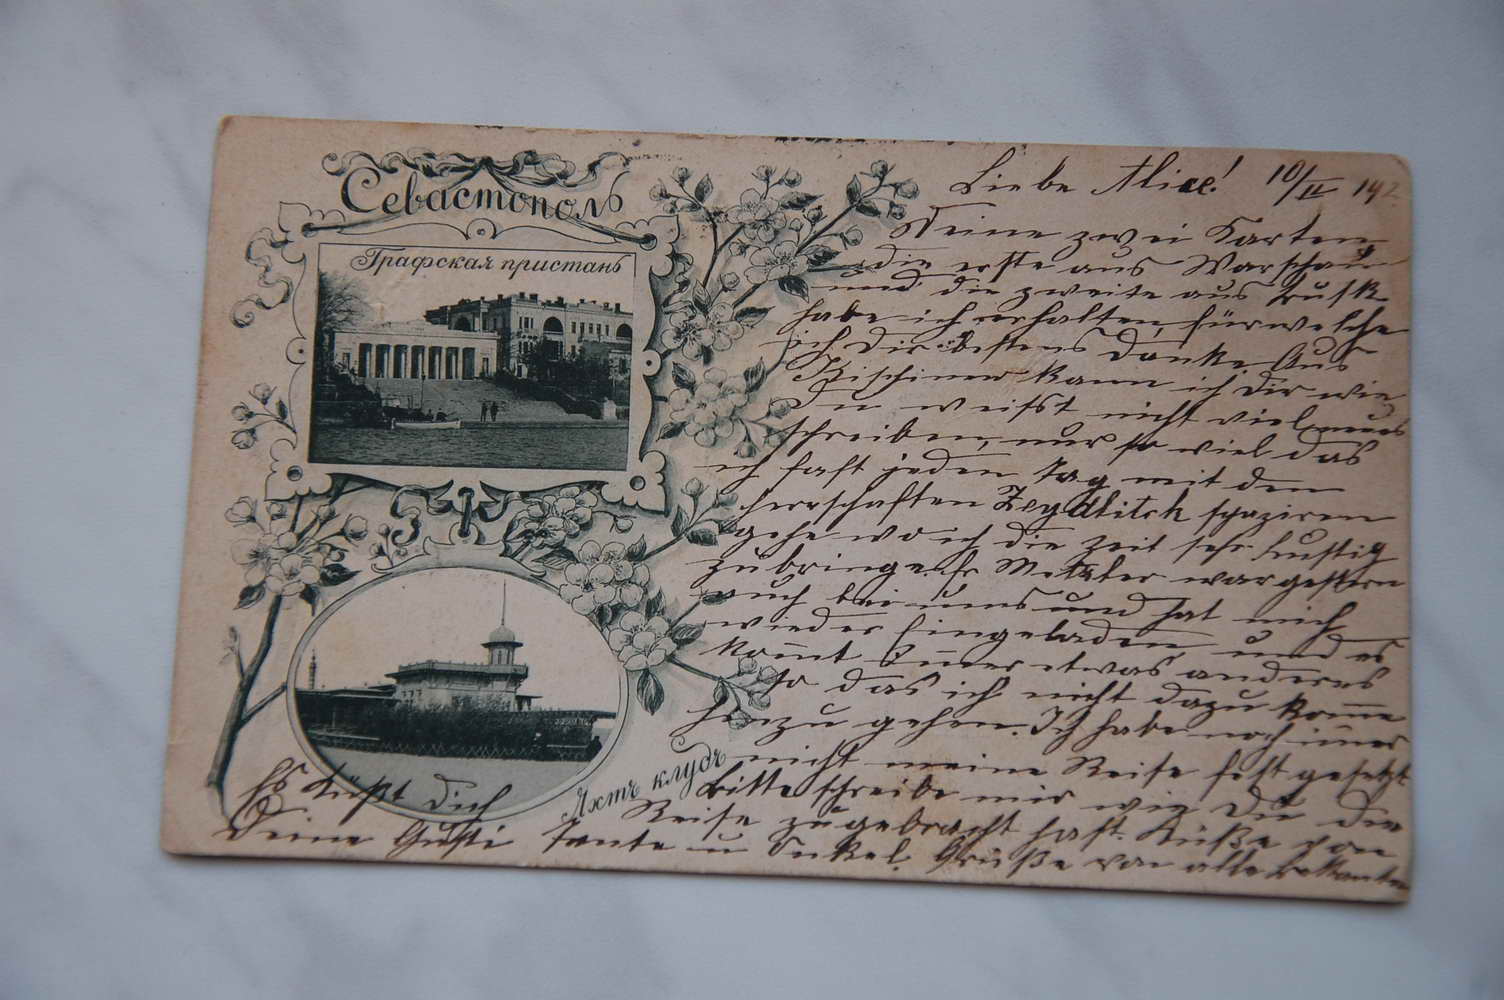 Севастополь
Графская пристань
Яхтъ клубъ
Liebe Alice! 10/II
Deine zwei Karten,
die erste aus Warschau
und die zweite aus
habe ich erhalten, für welche
ich dir bestens danke. Aus
Kischinew kann ich dir wie
Du weisst nicht viel neues
schreiben, nur so viel das
ich fast jeden Tag mit den
Herrschaften spaziren
gehe wo ich die Zeit sehr lustig
zubringe. Hr Metzler war gestern
auch bei uns und hat mich
wieder Eingeladen, und es
kom̄t Im̄er etwas anderes
so das ich nicht dazu kom̄e
hinzugehen. Ich habe noch im̄er
nicht meine Reise fest gesetzt
bitte schreibe mir wie Du die
Reise zugebracht hast. Küße von
Tante u Onkel. Grüße von alle Bekannten
Es küßt dich
Deine Gusti